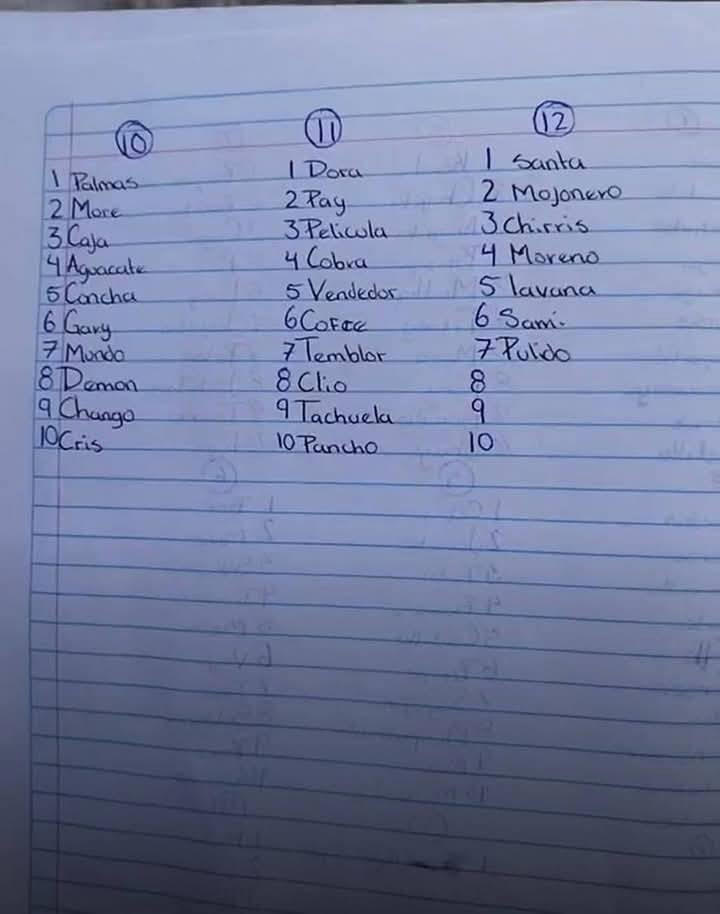 10 11 12
1 Palmas 1 Dora 1 Santa
2 More 2 Pay 2 Mojonero
3 Caja 3 Pelicula 3 Chirris
4 Aguacate 4 Cobra 4 Moreno
5 Concha 5 Vendedor 5 lavana
6 Gary 6 6 Sami
7 Mundo 7 Temblor 7 Pulido
8 Demon 8 Clio 8
9 Chango 9 Tachuela 9
10 Cris 10 Pancho 10